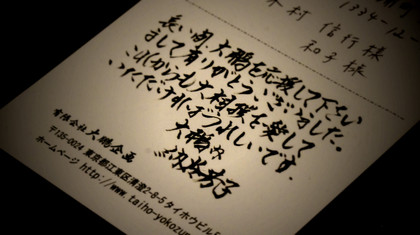 1334-12-
木村 信行様
和子様
長い間、大鵬を応援して下さい
まして有りがとうございました。
これからも大相撲を愛して
いただければうれしいです。
大鵬内
納谷芳子
有限会社大鵬企画
〒135-0024 東京都江東区清澄2-8-5タイホウビル
ホームページ http://www.taiho-yokozu